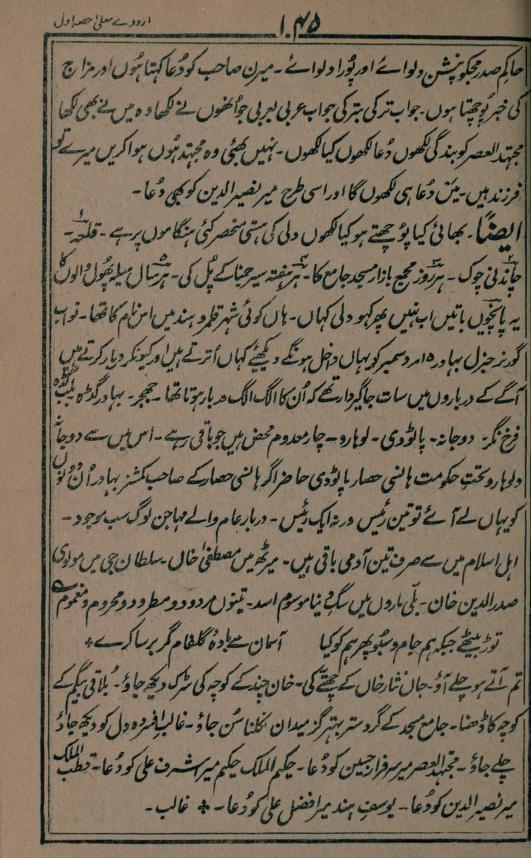 اردوے معلیٰ حصہ اول
۱۰۴۵
حاکم صدر مجکو پنشن دلوائے اور پورا دلوائے۔ میرن صاحب کو دعا کہتا ہوں اور مزاج
کی خبر پوچھتا ہوں۔ جواب ترکی بترکی جواب عربی بعربی جو انھوں نے لکھا وہ میں نے بھی لکھا
مجتہد العصر کو بندگی لکھوں دعا لکھوں کیا لکھوں۔ نہیں بھئی وہ مجتہد ہوں ہوا کریں میرے تو
فرزند ہیں۔ میں دعا ہی لکھوں گا اور اسی طرح میر نصیر الدین کو بھی دعا۔
ایضاً۔ بھائی کیا پوچھتے ہو کیا لکھوں دلی کی ہستی منحصر کئی ہنگاموں پر ہے۔ قلعہ۔
چاندنی چوک۔ ہر روز مجمع بازار مسجد جامع کا۔ ہر ہفتہ سیر جمنا کے پل کی۔ ہر سال میلہ پھول والوں کا
یہ پانچوں باتیں اب نہیں پھر کہو دلی کہاں۔ ہاں کوئی شہر قلمرو ہند میں اس نام کا تھا۔ نواب
گورنر جنرل بہادر ۱۵ دسمبر کو یہاں داخل ہونگے دیکھئے کہاں اُترتے ہیں اور کیونکر دربار کرتے ہیں
آگے کے درباروں میں سات جاگیردار تھے کہ اُن کا الگ الگ دربار ہوتا تھا۔ جھجر۔ بہادر گڈہ بلب گڈہ
فرخ نگر۔ دوجانہ۔ پاٹودی۔ لوہارو۔ چار معدوم محض ہیں جو باقی رہے۔ اس میں سے دوجانہ
و لوہارو تحت حکومت ہانسی حصار پاٹودی حاضر اگر ہانسی حصار کے صاحب کمشنر بہادر اُن دونوں
کو یہاں لے آئے تو تین رئیس ورنہ ایک رئیس۔ دربار عام والے مہاجن لوگ سب موجود۔
اہل اسلام میں سے صرف تین آدمی باقی ہیں۔ میرٹھ میں مصطفیٰ خاں۔ سلطان جی میں مولوی
صدر الدین خان۔ بلی ماروں میں سگ دنیا موسوم اسد۔ تینوں مردود و مطرود و محروم و مغموم
توڑ بیٹھے جبکہ ہم جام و سبو پھر ہم کو کیا آسمان سے بادۂ گلفام گر برسا کرے ٭
تم آتے ہو چلے آؤ۔ جان نثار خاں کے چھتے کی۔ خان چند کے کوچہ کی سڑک دیکھ جاؤ۔ بلاقی بیگم کے
کوچہ کا ڈھنا۔ جامع مسجد کے گرد ستر بہتر گز میدان نکلنا سن جاؤ۔ غالب افسردہ دل کو دیکھ جاؤ
چلے جاؤ۔ مجتہد العصر میر سرفراز حسین کو دعا۔ حکیم الملک حکیم میر اشرف علی کو دعا۔ قطب الملک
میر نصیر الدین کو دعا۔ یوسف ہند میر افضل علی کو دعا۔ ٭ غالب۔